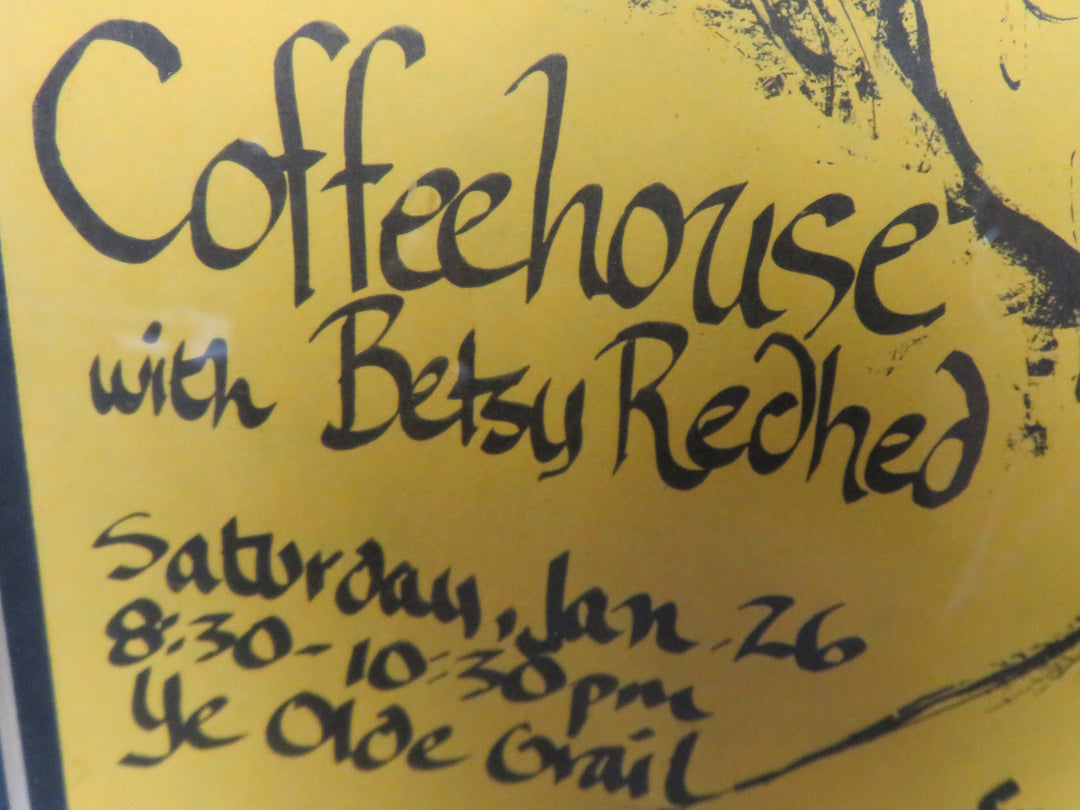 Coffeehouse
with Betsy Redhed
Saturday, Jan. 26
8:30-10:30pm
Ye Olde Grail